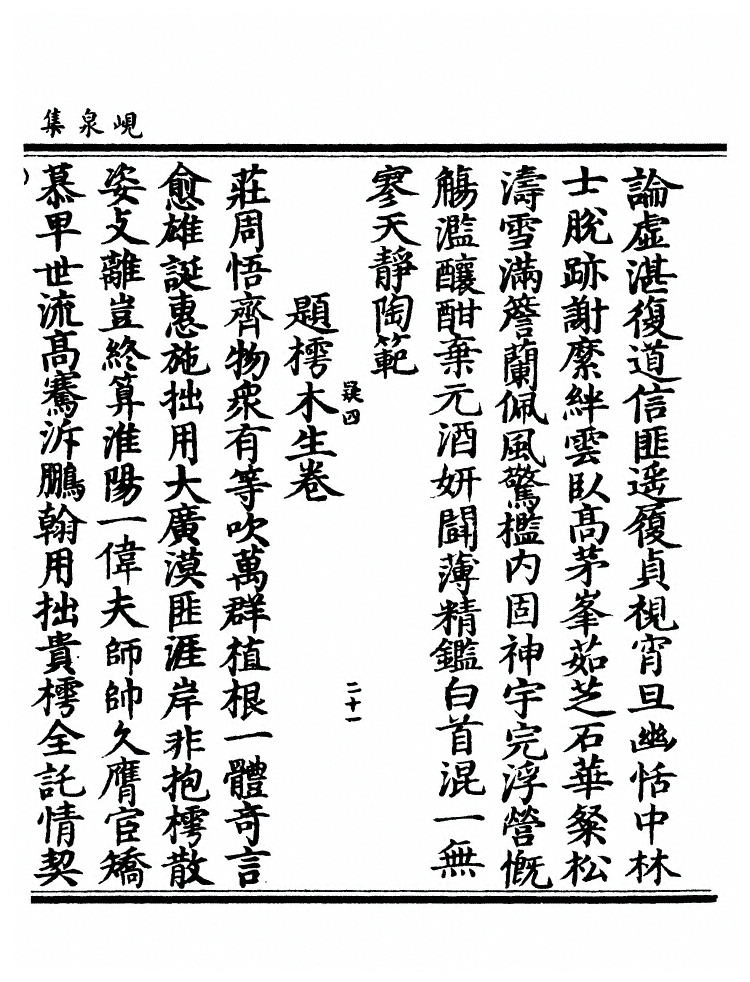 峴泉集
論虛湛復道信匪遥履貞視宵旦幽恬中林
士脫跡謝縻絆雲臥高茅峯茹芝石華粲松
濤雪滿簷蘭佩風驚檻内固神宇完浮營慨
觴濫釀酣棄元酒妍鬪薄精鑑白首混一無
寥天靜陶範
疑四
二十一
題樗木生卷
莊周悟齊物衆有等吹萬群植根一體奇言
愈雄誕惠施拙用大廣漠匪涯岸非抱樗散
姿攴離豈終算淮陽一偉夫師帥久膺官矯
慕甲世流高騫泝鵬翰用拙貴樗全託情契